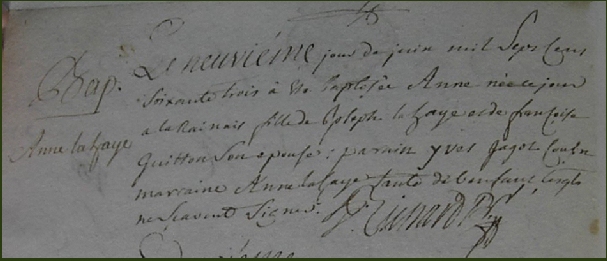 Bap. Le neuvième jour de juin mil Sept Cens
Soixante trois à été baptisée Anne née ce jour
Anne la haye
a la Rainais fille de Joseph la haye et de françoise
Guitton Son epouse : parain yves Jagot
marraine Anne la haye tante de l'enfant lesquels
ne Scavent Signer.